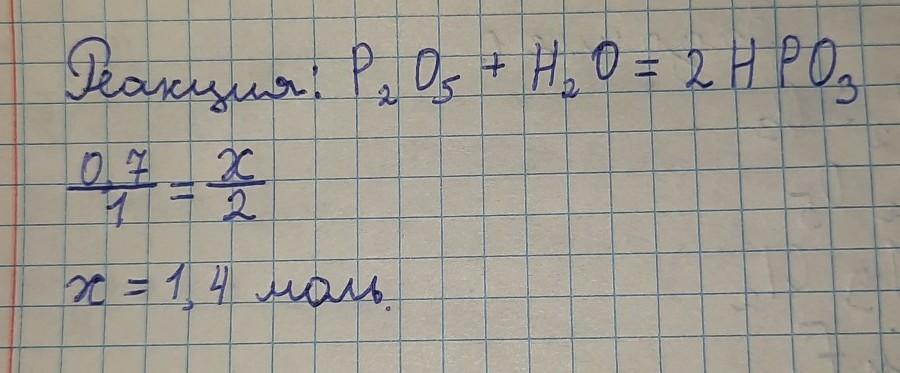 Реакция: P₂O₅ + H₂O = 2HPO₃
0,7/1 = x/2
x = 1,4 моль.